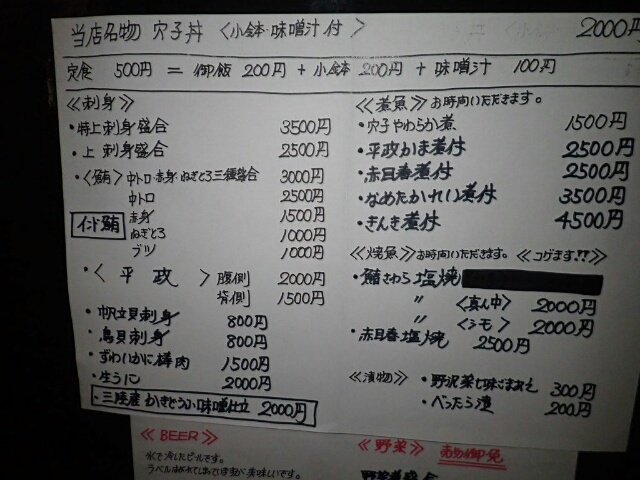 当店名物 穴子丼 〈小鉢・味噌汁付〉 2000円
定食 500円 = 御飯 200円 + 小鉢 200円 + 味噌汁 100円
≪刺身≫
・特上刺身盛合 3500円
・上刺身盛合 2500円
・〈鮪〉中トロ・赤身・ねぎとろ三種盛合 3000円
中トロ 2500円
インド鮪
赤身 1500円
ねぎとろ 1000円
ブツ 1000円
・〈平政〉腹側 2000円
背側 1500円
・帆立貝刺身 800円
・鳥貝刺身 800円
・ずわいかに棒肉 1500円
・生うに 2000円
・三陸産かきとうふ味噌仕立 2000円
≪煮魚≫お時間いただきます。
・穴子やわらか煮 1500円
・平政かま煮付 2500円
・赤目春煮付 2500円
・なめたかれい煮付 3500円
・きんき煮付 4500円
≪焼魚≫お時間いただきます。≪コゲます!!≫
・鰆さわら塩焼
〃 〈真ん中〉 2000円
〃 〈シモ〉 2000円
・赤目春塩焼 2500円
≪漬物≫ ・野沢菜七味ごまあえ 300円
・べったら漬 200円
≪BEER≫
氷で冷したビールです。
≪野菜≫